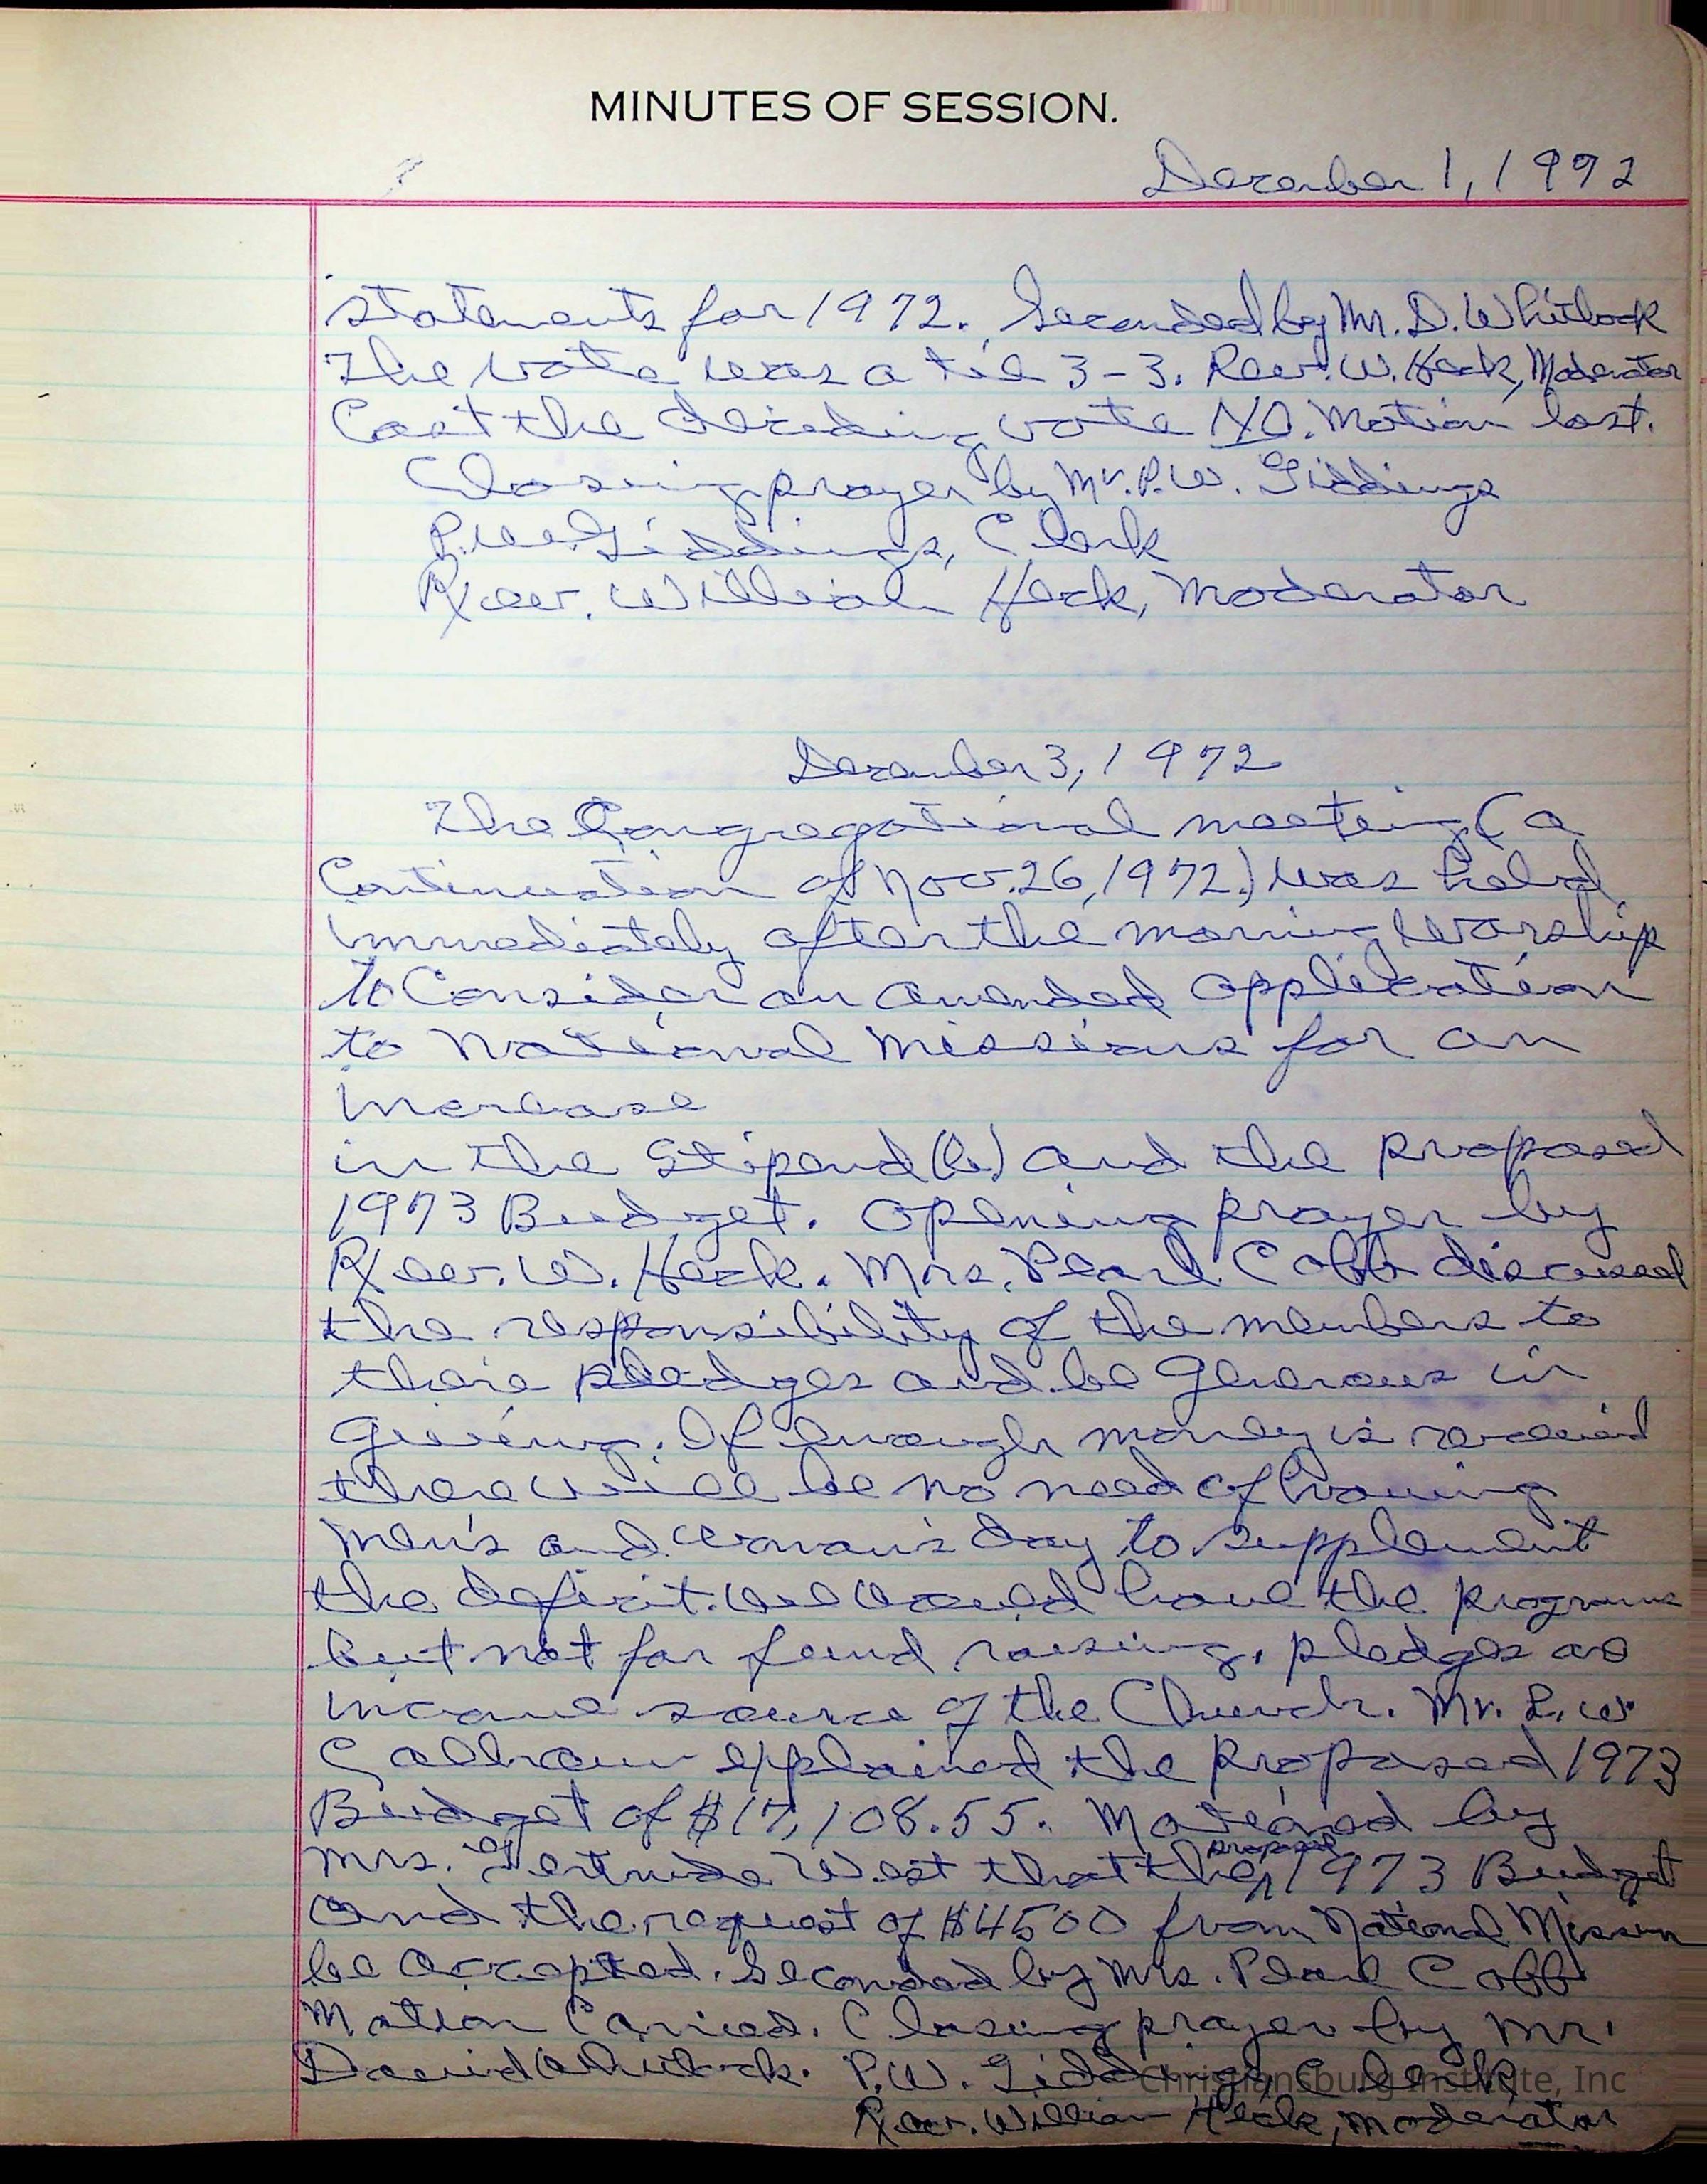 MINUTES OF SESSION.
December 1, 1972
statements for 1972. Seconded by Mr. D. Whitlock
The vote was a tie 3-3. Rev. W. Heck, Moderator
Cast the deciding vote NO. Motion lost.
Closing prayer by Mr. P.W. Giddings
P.W. Giddings, Clerk
Rev. William Heck, Moderator
December 3, 1972
The Congregational meeting (a
Continuation of Nov. 26, 1972.) was held
immediately after the morning Worship
to Consider an amended application
to National Missions for an
increase
in the Stipend and the proposed
1973 Budget. Opening prayer by
Rev. W. Heck. Mrs. Pearl Cobb discussed
the responsibility of the members to
their pledges and be generous in
giving. If enough money is received
there will be no need of having
Men's and Woman's day to supplement
the deficit. We would have the programs
but not for fund raising, pledges as
income source of the Church. Mr. L. W.
Calhoun explained the proposed 1973
Budget of $17,108.55. Motioned by
Mrs. Gertrude West that the proposed 1973 Budget
and the request of $4500 from National Mission
be accepted. Seconded by Mrs. Pearl Cobb
Motion Carried. Closing prayer by Mr.
David Whitlock. P.W. Giddings, Clerk
Rev. William Heck, moderator
Christiansburg Institute, Inc